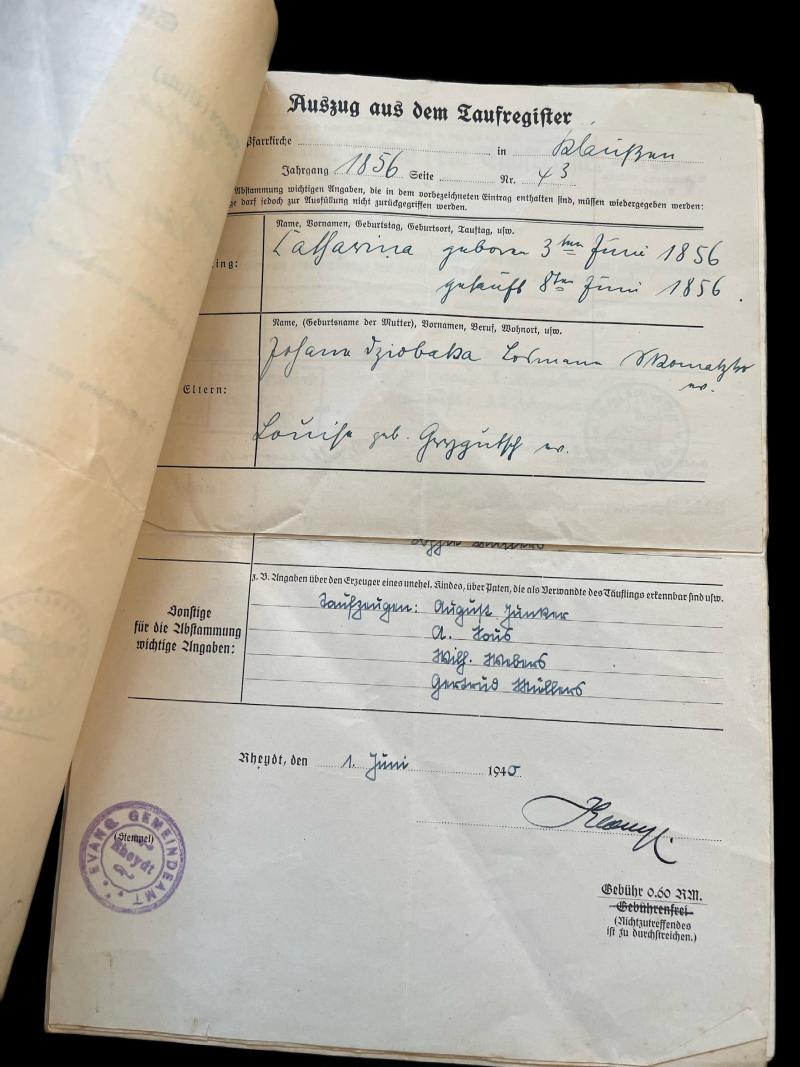 Auszug aus dem Taufregister
Pfarrkirche in Klaußen
Jahrgang 1856 Seite Nr. 43
Abstammung wichtigen Angaben, die in dem vorbezeichneten Eintrag enthalten sind, müssen wiedergegeben werden:
ge darf jedoch zur Ausfüllung nicht zurückgegriffen werden.
Name, Vornamen, Geburtstag, Geburtsort, Tauftag, usw.
ing:
Catharina geboren 3ten Juni 1856
getauft 8ten Juni 1856.
Name, (Geburtsname der Mutter), Vornamen, Beruf, Wohnort, usw.
Johann Dziobaka Losmann Skomatzko
ev.
Eltern:
Louise geb. Grygutsch ev.
z. B. Angaben über den Erzeuger eines unehel. Kindes, über Paten, die als Verwandte des Täuflings erkennbar sind usw.
Sonstige
für die Abstammung
wichtige Angaben:
Taufzeugen: August Junker
A.
Wilh. Webers
Gertrud Müllers
Rheydt, den 1. Juni 1940
(Stempel)
EVANG. GEMEINDEAMT
Rheydt
Gebühr 0.60 RM.
Gebührenfrei
(Nichtzutreffendes
ist zu durchstreichen.)